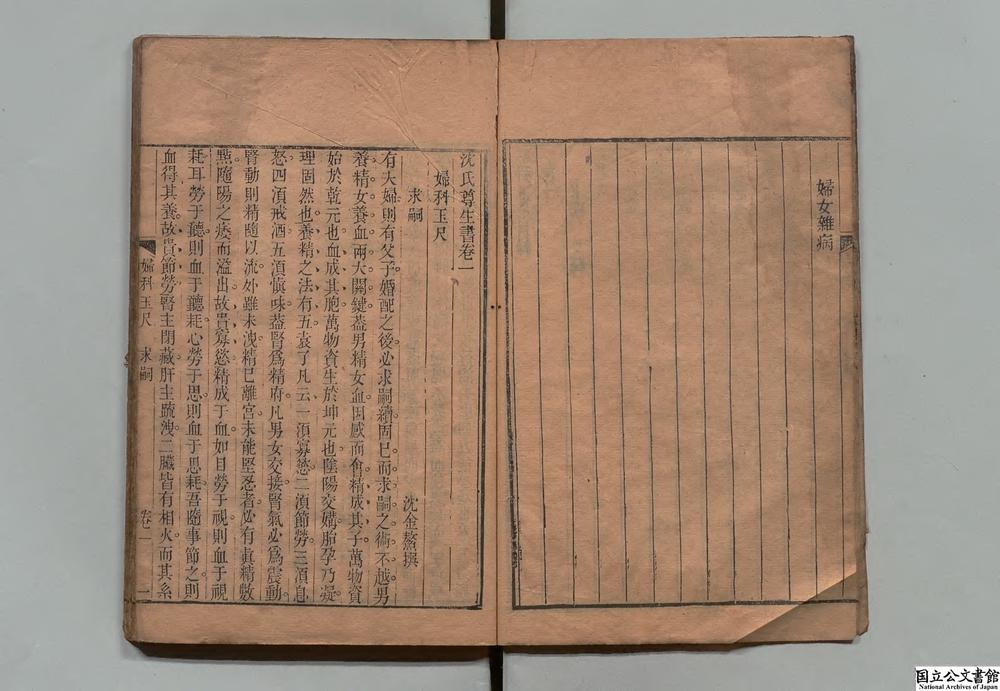 婦女雜病
沈氏尊生書卷一
婦科玉尺
沈金鰲撰
求嗣
有夫婦則有父子婚配之後必求嗣續固已而求嗣之術不越男
養精女養血兩大關鍵葢男精女血因感而會精成其子萬物資
始於乾元也血成其胞萬物資生於坤元也陰陽交媾胎孕乃凝
理固然也養精之法有五袁了凡云一須寡慾二須節勞三須息
怒四須戒酒五須愼味葢腎爲精府凡男女交接腎氣必爲震動
腎動則精隨以流外雖未洩精已離宮未能堅忍者必有眞精數
點隨陽之痿而溢出故貴寡慾精成于血如目勞于視則血于視
耗耳勞于聽則血于聽耗心勞于思則血于思耗吾隨事節之則
血得其養故貴節勞腎主閉藏肝主疏洩二臟皆有相火而其系
婦科玉尺 求嗣 卷一 一
国立公文書館
National Archives of Japan